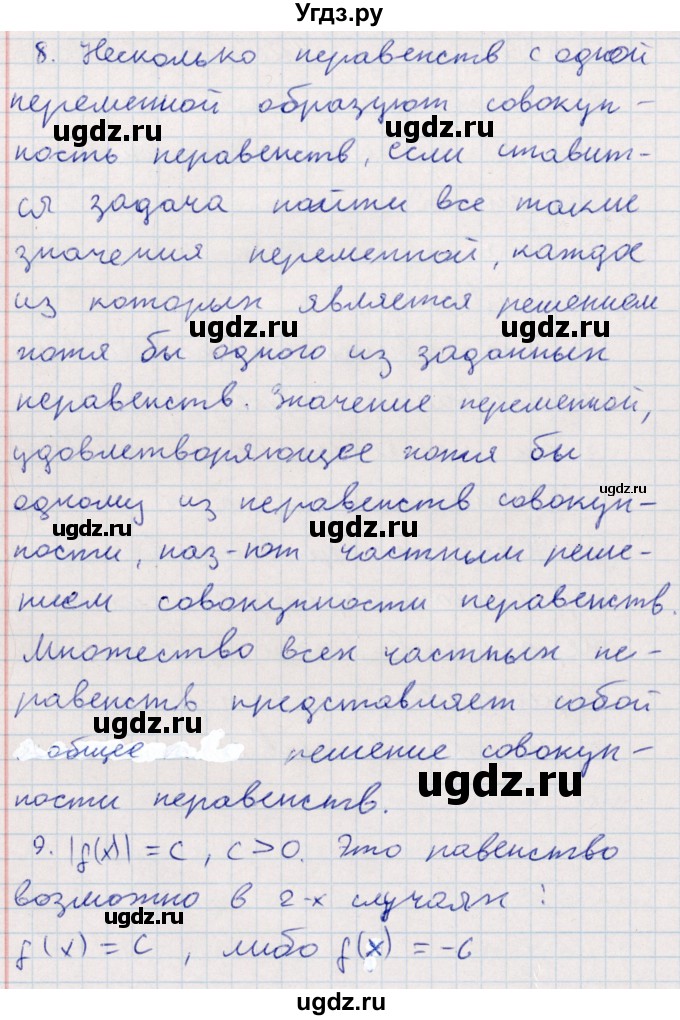 Угдз.ру
8. Несколько неравенств с одной
переменной образуют совокуп-
ugdz.ru ugdz.ru
ность неравенств, если ставит-
ся задача найти все такие
значения переменной, каждое
из которых является решением
ugdz.ru ugdz.ru
хотя бы одного из заданных
неравенств. Значение переменной,
удовлетворяющее хотя бы
одному из неравенств совокуп-
ugdz.ru ugdz.ru ugdz.ru
ности, наз-ют частным реше-
нием совокупности неравенств.
Множество всех частных не-
равенств представляет собой
ugdz.ru
общее решение совокуп-
ugdz.ru
ности неравенств.
9. |f(x)| = c, c>0. Это равенство
возможно в 2-х случаях:
ugdz.ru ugdz.ru
f(x) = c, либо f(x) = -c
ugdz.ru